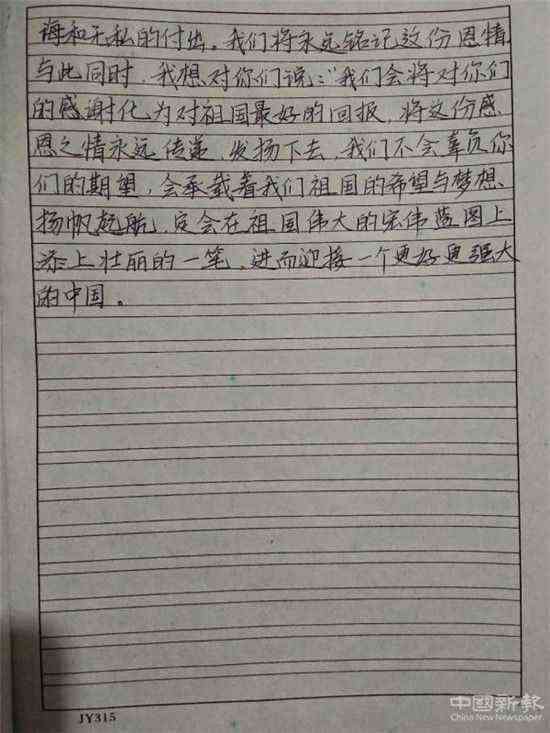 诲和无私的付出。我们将永远铭记这份恩情
与此同时，我想对你们说：“我们会将对你们
的感谢化为对祖国最好的回报，将这份感
恩之情永远传递，发扬下去，我们不会辜负你
们的期望，会承载着我们祖国的希望与梦想，
扬帆起航，定会在祖国伟大的宏伟蓝图上
添上壮丽的一笔，进而迎接一个更好更强大
的中国。
JY315
中國新報
China New Newspaper